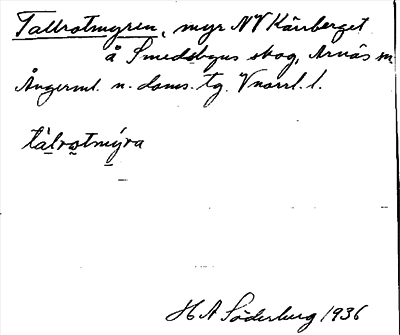 Tallrotmyren, myr NV Kärrberget
å Smedsbyns skog, Arnäs sn
Ångerml. n. doms. tg. Vnorrl. l.
tàlrotmýra
H A Söderberg 1936